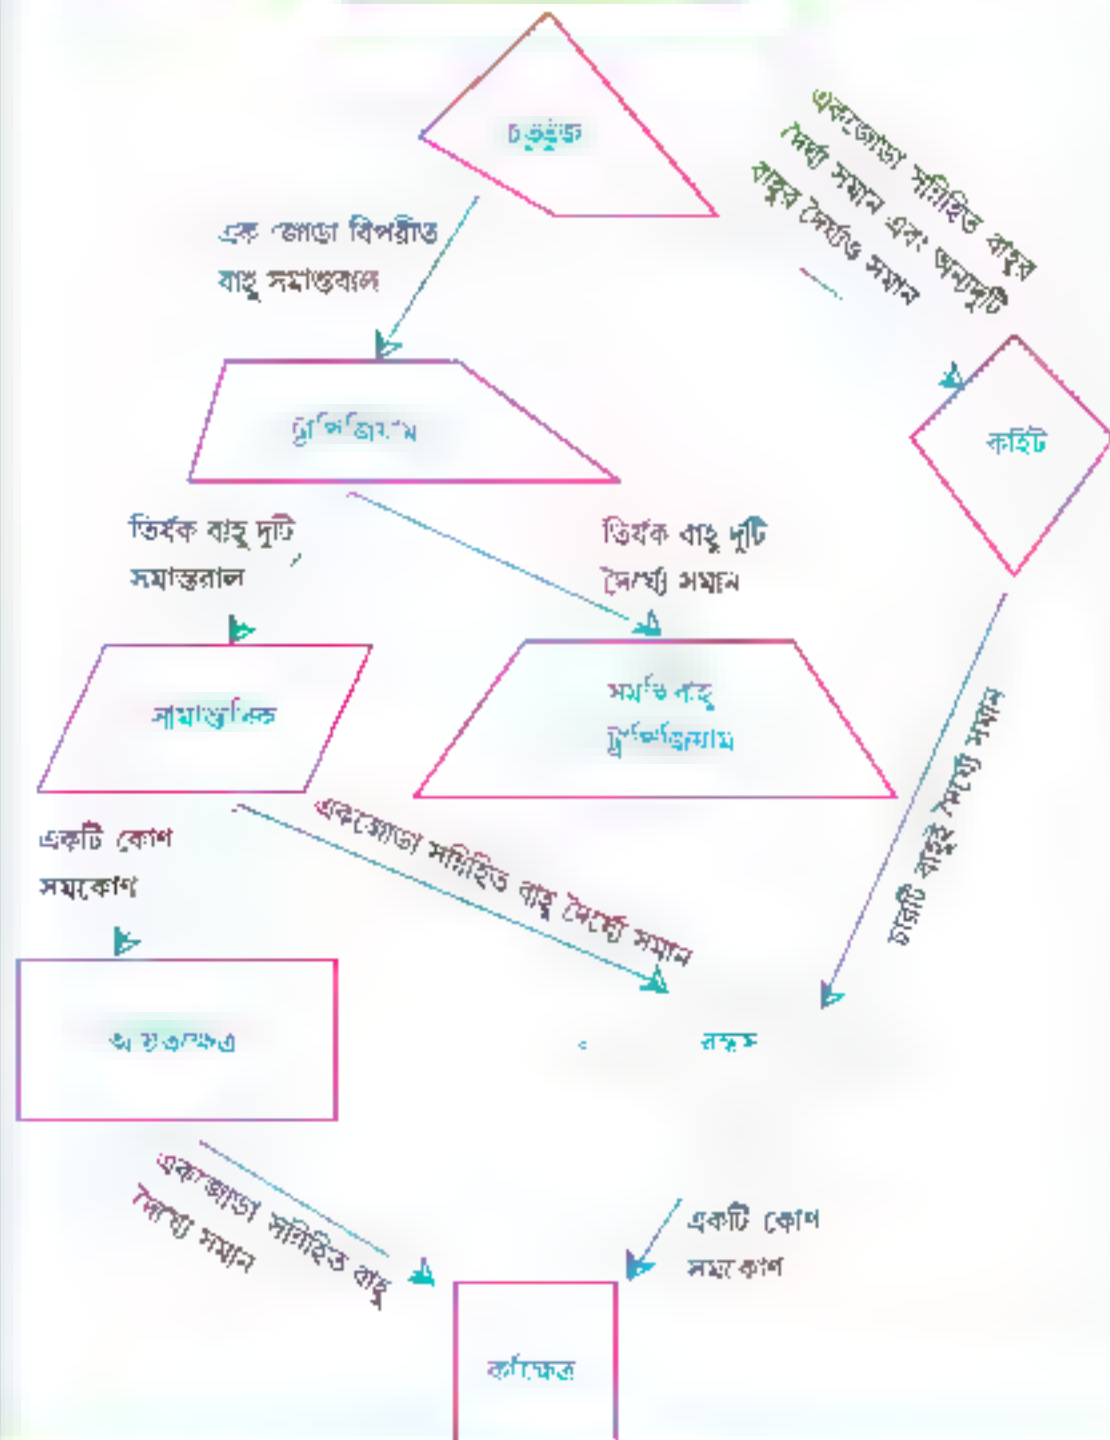 চতুর্ভুজ
একজোড়া সন্নিহিত বাহুর
দৈর্ঘ্য সমান এবং অন্যদুটি
বাহুর দৈর্ঘ্যও সমান
এক জোড়া বিপরীত
বাহু সমান্তরাল
ট্রাপিজিয়াম
কাইট
তির্যক বাহু দুটি
সমান্তরাল
তির্যক বাহু দুটি
দৈর্ঘ্যে সমান
সামান্তরিক
সমদ্বিবাহু
ট্রাপিজিয়াম
চারটি বাহুই দৈর্ঘ্যে সমান
একটি কোণ
সমকোণ
একজোড়া সন্নিহিত বাহু দৈর্ঘ্যে সমান
আয়তক্ষেত্র
রম্বস
একজোড়া সন্নিহিত বাহু
দৈর্ঘ্যে সমান
একটি কোণ
সমকোণ
বর্গক্ষেত্র